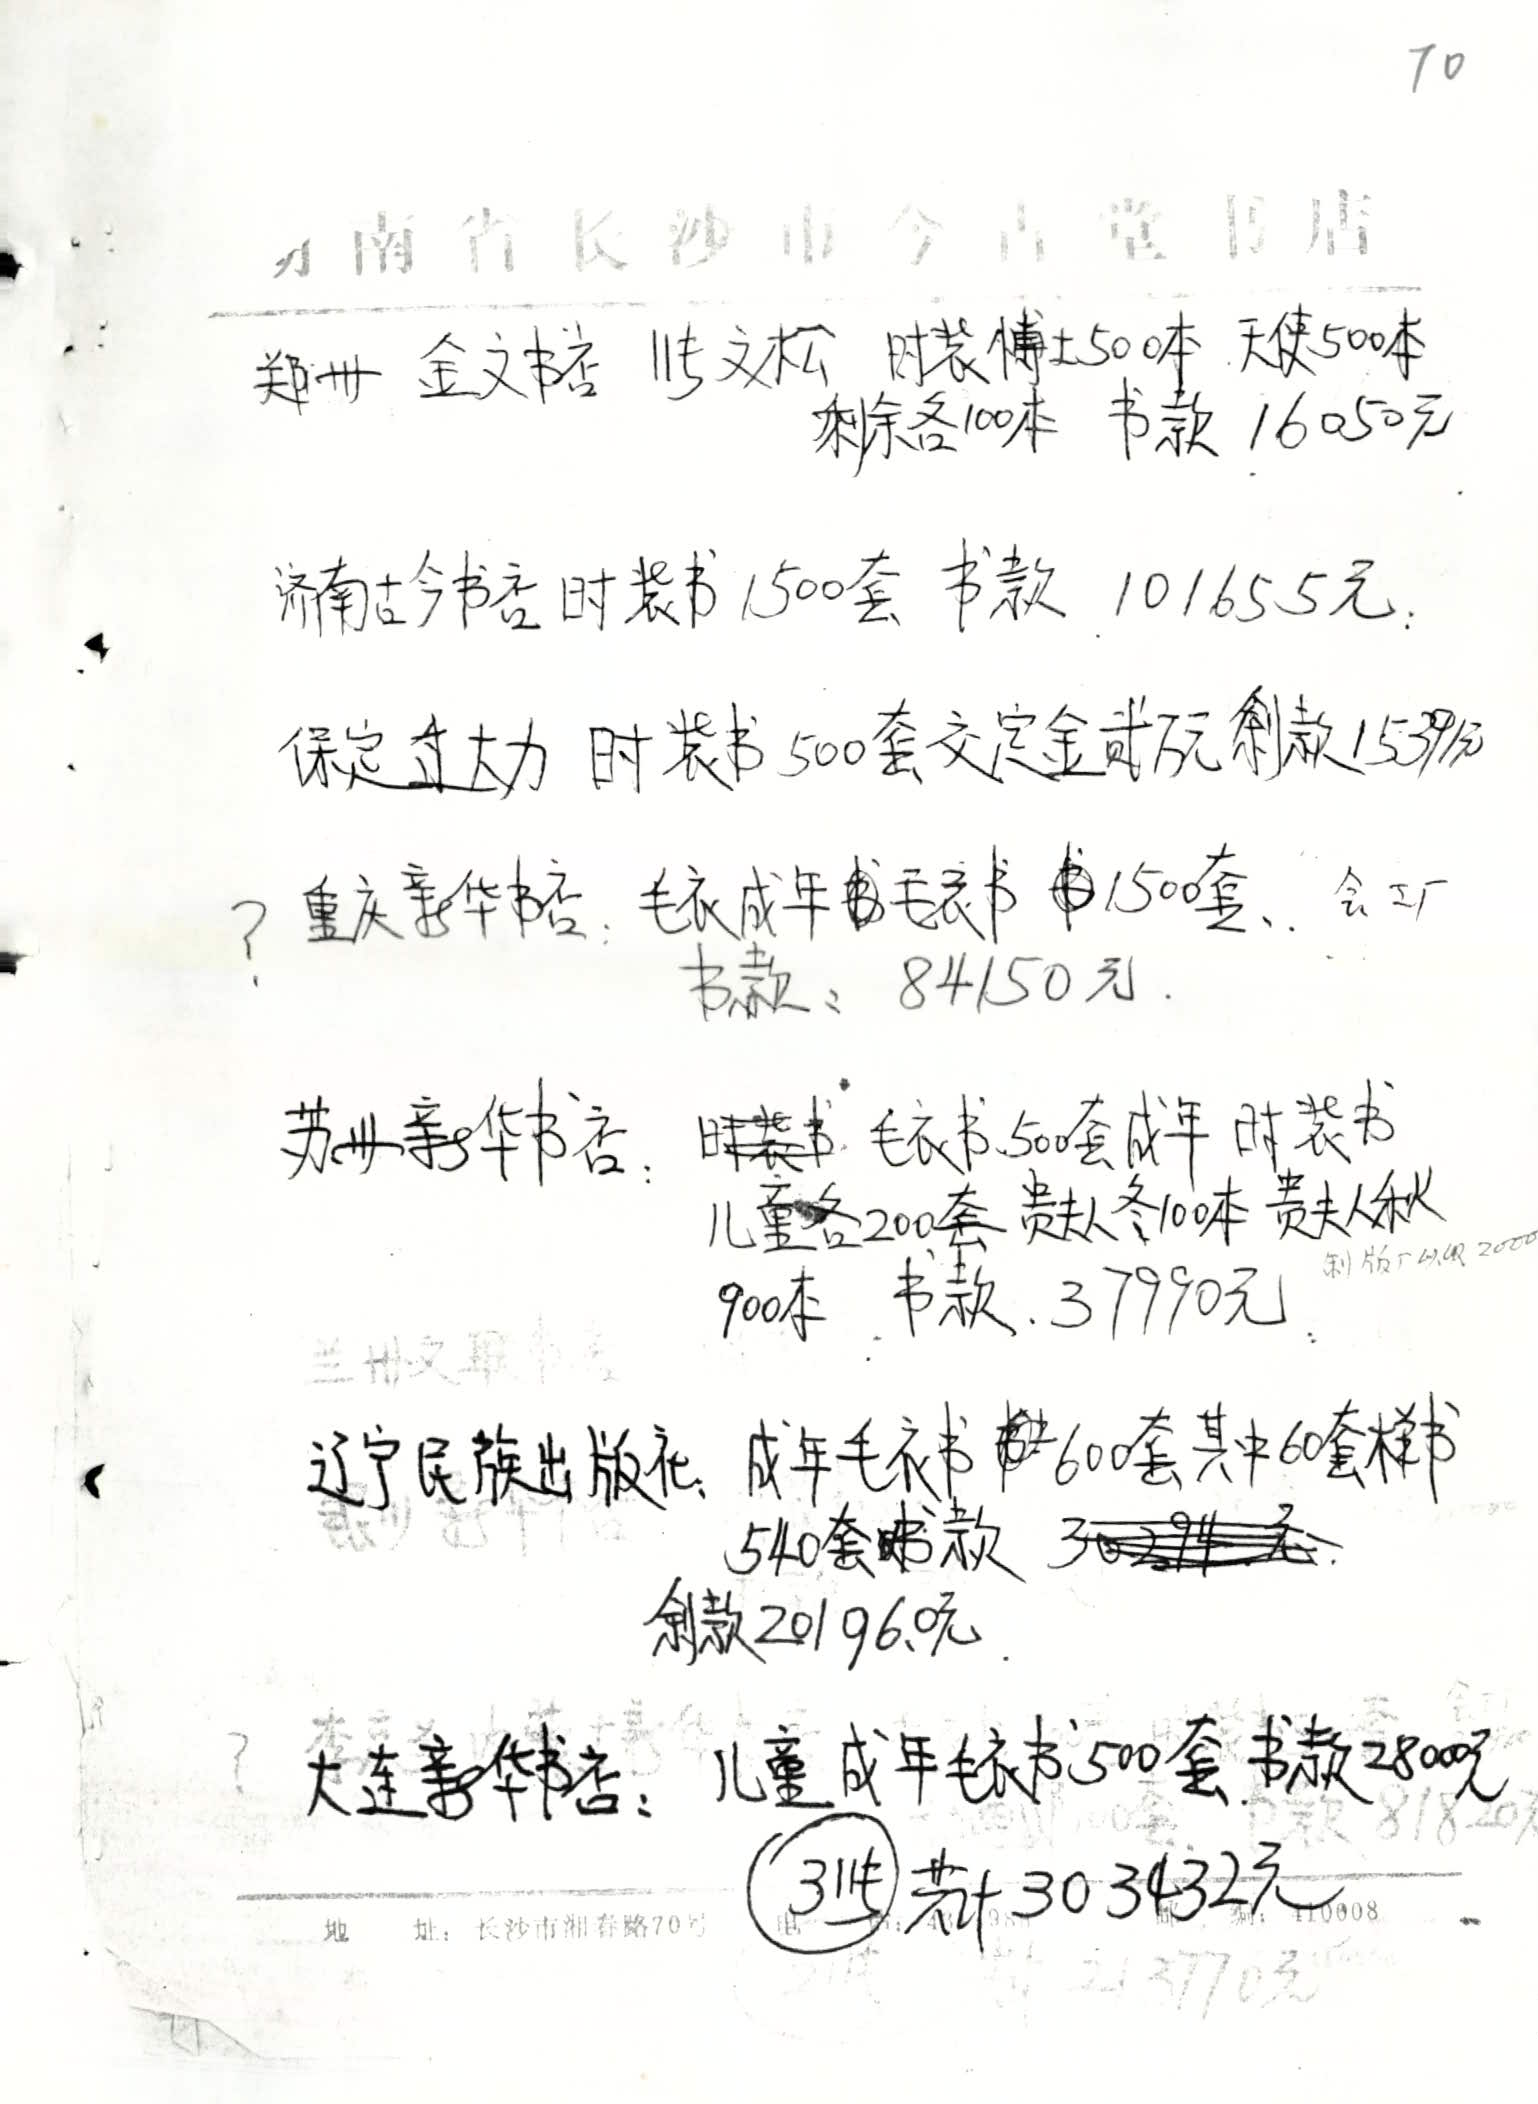 70
湖南省长沙市今古堂书店
郑州 金文书店 张文松 时装博士500本 天使500本
剩余各100本 书款 16050元
济南古今书店 时装书 1500套 书款 101655元.
保定 过大力 时装书 500套 交定金贰万元 剩款15391元
? 重庆新华书店: 毛衣成年书毛衣书 1500套、 会工厂
书款: 84150元.
苏州新华书店: 时装书 毛衣书500套成年 时装书
儿童各200套 贵夫人冬100本 贵夫人秋
制版厂 2000
900本 书款 37990元
兰州文
辽宁民族出版社: 成年毛衣书 600套 其中60套样书
540套书款 30294元
剩款20196.0元
? 大连新华书店: 儿童成年毛衣书500套 书款28000元
书款 81820元
3张 共计 303432元
地 址: 长沙市湘春路70号 电 邮 编: 410008
213770元